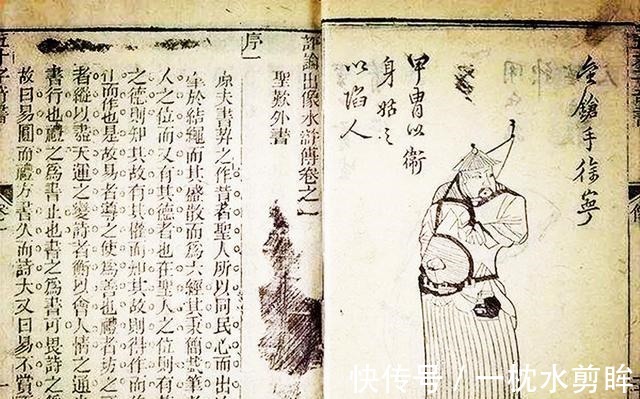 金鎗手徐寧
甲冑以衛
身姑之
以陷人
評論出像水滸傳卷之一
聖歎外書
序一
原夫書契之作昔者聖人所以同民心而出
肇於結繩而其盛殽而爲六經其秉簡載筆
人之位而又有其德者也在聖人之位則有
之德則知其故有其權而知其故則得作而
作而作也是故易者導之使爲善也禮者坊之不
者縱以盡天運之變詩者衡以會人情之通
書行也禮之爲書止也書之爲書可畏詩之
故曰易圓而禮方書久而詩大又曰易不賞
快传号 / 一枕水剪眸